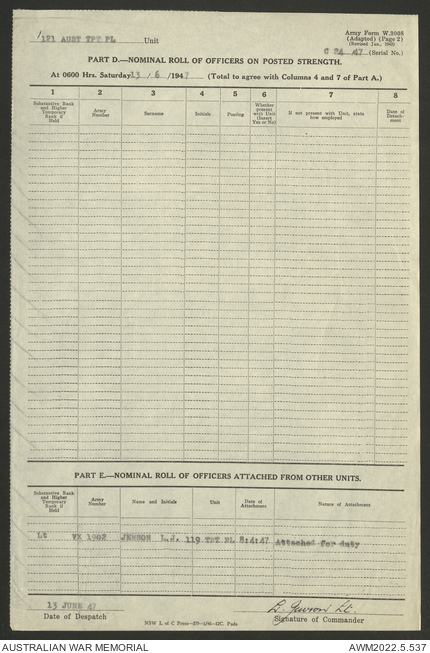 Army Form W.3008
(Adapted) (Page 2)
(Revised Jan., 1940)
121 AUST TPT PL Unit
C 24 47 (Serial No.)
PART D.—NOMINAL ROLL OF OFFICERS ON POSTED STRENGTH.
At 0600 Hrs. Saturday 13 / 6 /1947 (Total to agree with Columns 4 and 7 of Part A.)
1 2 3 4 5 6 7 8
Substantive Rank and Higher Temporary Rank if Held
Army Number
Surname
Initials
Posting
Whether present with Unit (Insert Yes or No)
If not present with Unit, state how employed
Date of Detachment
PART E.—NOMINAL ROLL OF OFFICERS ATTACHED FROM OTHER UNITS.
Substantive Rank and Higher Temporary Rank if Held
Army Number
Name and Initials
Unit
Date of Attachment
Nature of Attachment
Lt VX 1902 L.J. 119 TPT PL 8:4:47 Attached for duty
13 JUNE 47
Date of Despatch
Lt.
Signature of Commander
AUSTRALIAN WAR MEMORIAL
AWM2022.5.537